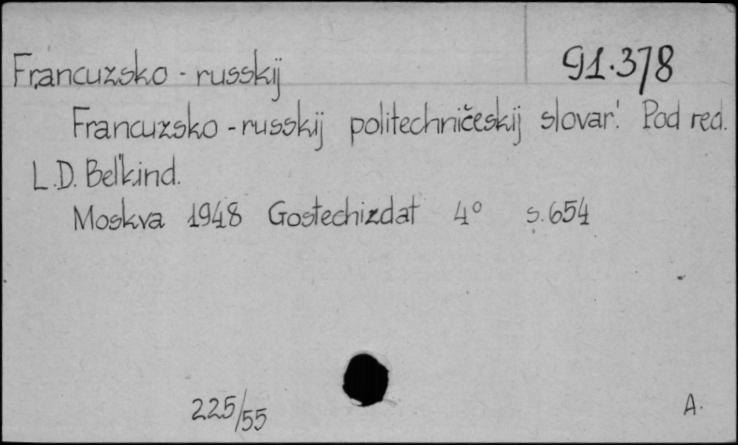 Francuzsko - russkij 91.378
Francuzsko - russkij politechničeskij slovar'. Pod red.
L.D. Bel'kind.
Moskva 1948 Gostechizdat 4° s. 654
225/55 A.